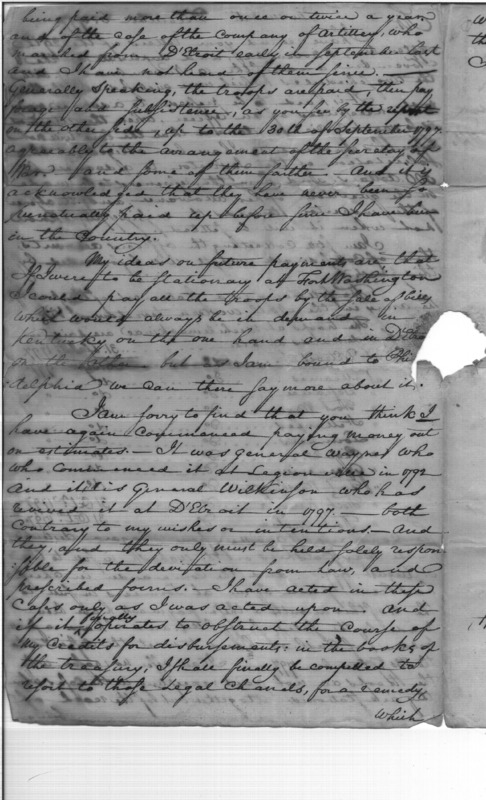 being paid more than once or twice a year
and of the case of the Company of Artillery, who
marched from D'Etroit early in September last
and I have not heard of them since. —
Generally speaking, the troops are paid, their pay
forage and subsistence, as you see by the report
on the other side, up to the 30th of September 1797
agreeably to the arrangement of the secretary of
War and some of them farther. And it is
acknowledged that they have never been so
punctually paid up before since I have been
in the Country.
My ideas on future payments are that
if I were to be stationary at Fort Washington
I could pay all the troops by the sale of bills
which would always be in demand in
Kentucky on the one hand and in D'Etroit
on the other but as I am bound to Phi
ladelphia we can there say more about it.
I am sorry to find that you think I
have again commenced paying money out
on estimates. — It was General Wayne who
who commenced it at Legion ville in 1792
and it is General Wilkinson who has
revived it at D'Etroit in 1797 — both
contrary to my wishes or intentions. And
they, and they only must be held solely respon
sible for the deviation from Law, and
prescribed forms. — I have acted in these
Cases only as I was acted upon and
if it operates to obstruct the course of
my Credits for disbursements in the books of
the treasury, I shall finally be compelled to
resort to those Legal Chanels, for a remedy
Which